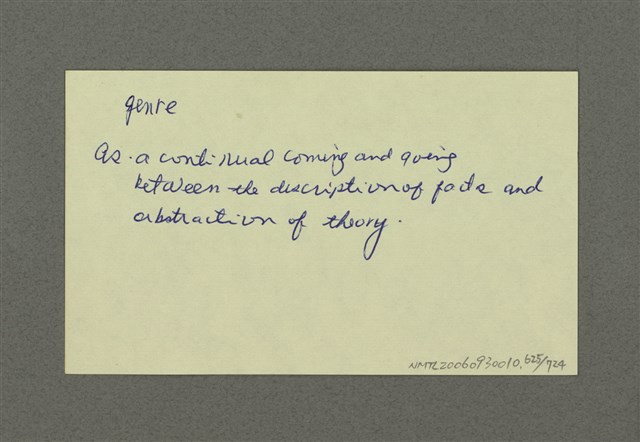 genre
as a continual coming and going
between the description of facts and
abstraction of theory.
NMTL20060930010.625/724